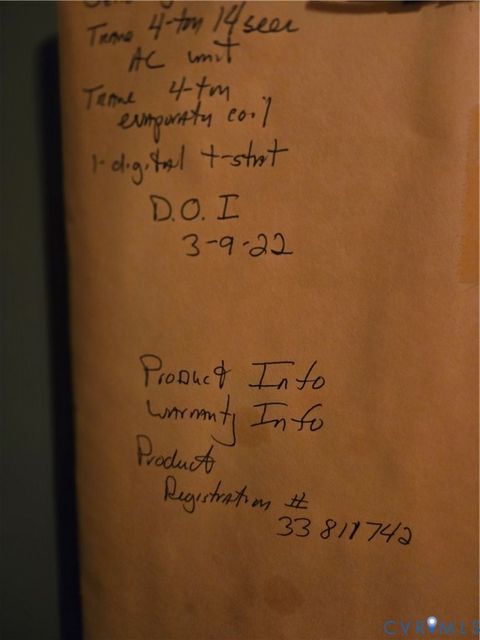 Trane 4-ton 14 seer
AC unit
Trane 4-ton
evaporatr coil
1-digital t-stat
D.O.I
3-9-22
Product Info
Warranty Info
Product
Registration #
33811742
CVRMLS